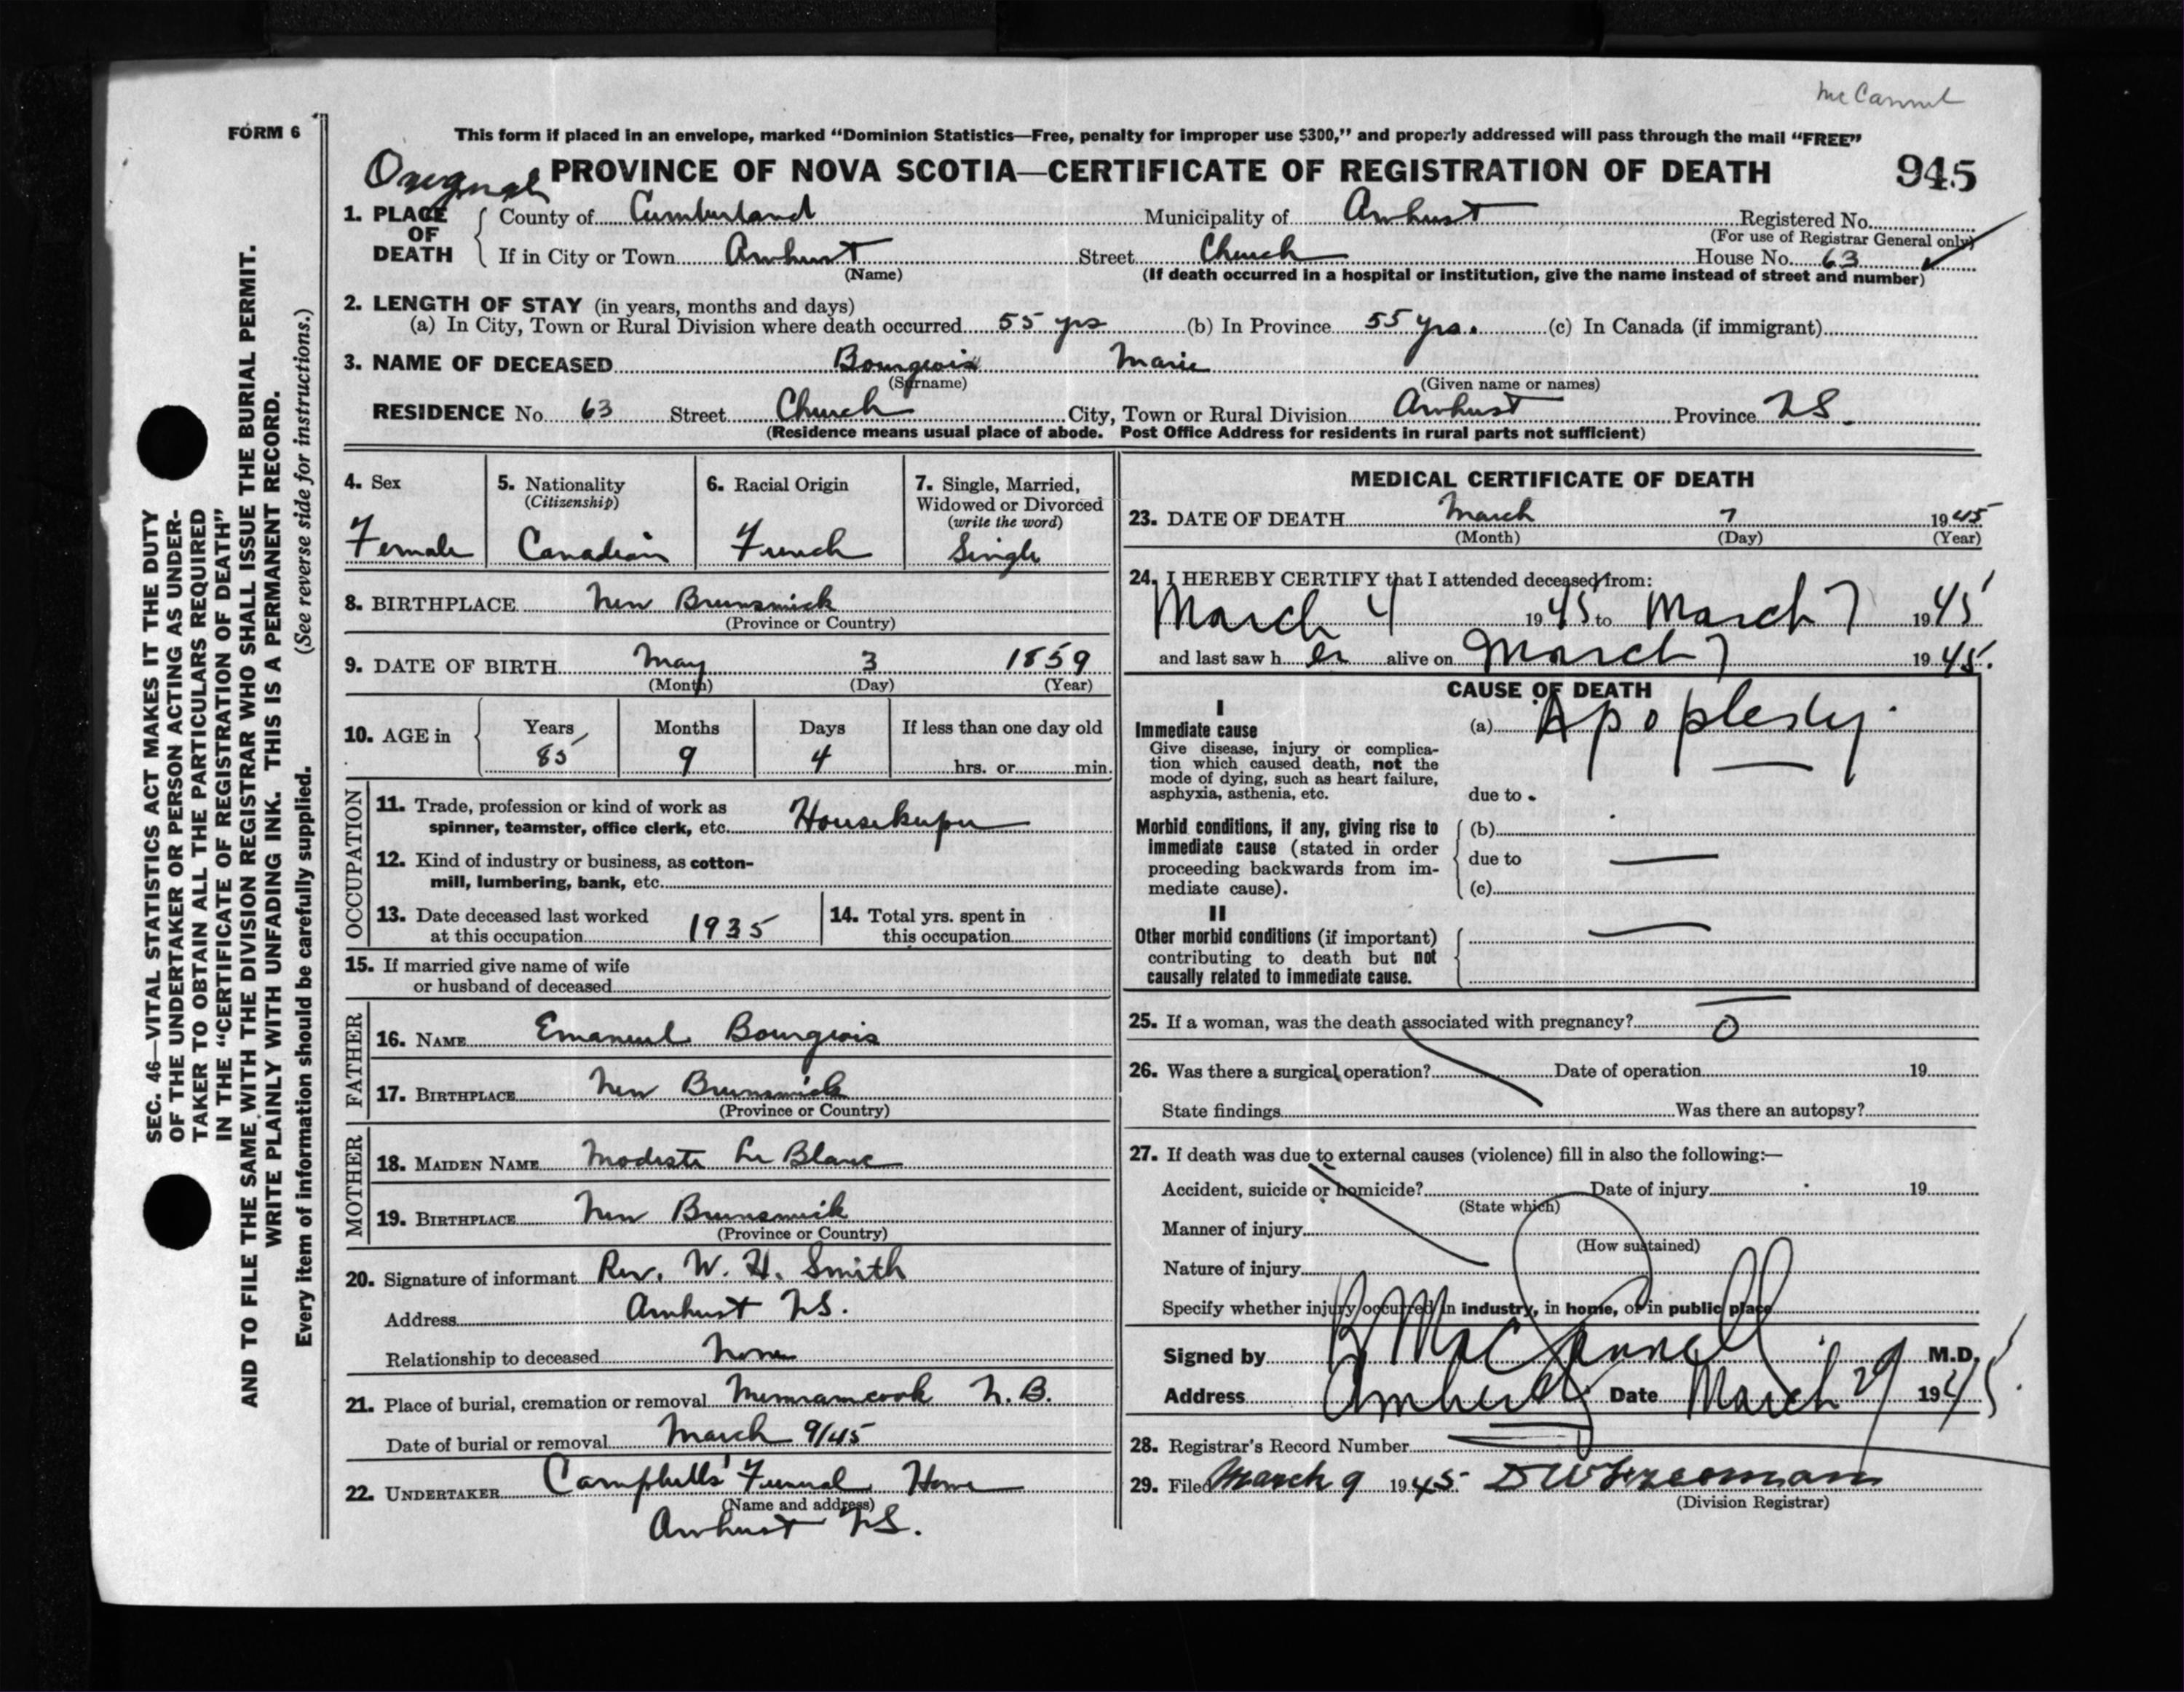 McCannel
FORM 6
This form if placed in an envelope, marked “Dominion Statistics—Free, penalty for improper use $300,” and properly addressed will pass through the mail “FREE”
Original PROVINCE OF NOVA SCOTIA—CERTIFICATE OF REGISTRATION OF DEATH 945
1. PLACE OF DEATH County of Cumberland Municipality of Amherst Registered No.
(For use of Registrar General only)
If in City or Town Amherst Street Church House No. 63
(Name) (If death occurred in a hospital or institution, give the name instead of street and number)
2. LENGTH OF STAY (in years, months and days)
(a) In City, Town or Rural Division where death occurred 55 yrs (b) In Province 55 yrs. (c) In Canada (if immigrant)
3. NAME OF DECEASED Bourgeois Marie
(Surname) (Given name or names)
RESIDENCE No. 63 Street Church City, Town or Rural Division Amherst Province NS.
(Residence means usual place of abode. Post Office Address for residents in rural parts not sufficient)
4. Sex 5. Nationality 6. Racial Origin 7. Single, Married,
(Citizenship) Widowed or Divorced
(write the word)
Female Canadian French Single
8. BIRTHPLACE New Brunswick
(Province or Country)
9. DATE OF BIRTH May 3 1859
(Month) (Day) (Year)
10. AGE in Years Months Days If less than one day old
85 9 4 hrs. or min.
OCCUPATION
11. Trade, profession or kind of work as
spinner, teamster, office clerk, etc. Housekeeper
12. Kind of industry or business, as cotton-
mill, lumbering, bank, etc.
13. Date deceased last worked 14. Total yrs. spent in
at this occupation 1935 this occupation
15. If married give name of wife
or husband of deceased
FATHER
16. NAME Emanuel Bourgeois
17. BIRTHPLACE New Brunswick
(Province or Country)
MOTHER
18. MAIDEN NAME Modeste Le Blanc
19. BIRTHPLACE New Brunswick
(Province or Country)
20. Signature of informant Rev. W. H. Smith
Address Amherst NS.
Relationship to deceased None
21. Place of burial, cremation or removal Memramcook N.B.
Date of burial or removal March 9/45
22. UNDERTAKER Campbells' Funeral Home
(Name and address)
Amherst NS.
MEDICAL CERTIFICATE OF DEATH
23. DATE OF DEATH March 7 1945
(Month) (Day) (Year)
24. I HEREBY CERTIFY that I attended deceased from:
March 4 1945 to March 7 1945
and last saw her alive on March 7 1945.
CAUSE OF DEATH
I
Immediate cause (a) Apoplexy.
Give disease, injury or complica-
tion which caused death, not the
mode of dying, such as heart failure,
asphyxia, asthenia, etc. due to
Morbid conditions, if any, giving rise to (b)
immediate cause (stated in order due to —
proceeding backwards from im-
mediate cause). (c)
II
Other morbid conditions (if important) —
contributing to death but not
causally related to immediate cause.
25. If a woman, was the death associated with pregnancy? O
26. Was there a surgical operation? Date of operation 19
State findings Was there an autopsy?
27. If death was due to external causes (violence) fill in also the following:—
Accident, suicide or homicide? Date of injury 19
(State which)
Manner of injury
(How sustained)
Nature of injury
Specify whether injury occurred in industry, in home, or in public place
Signed by MacCannell M.D.
Address Amherst Date March 29 1945.
28. Registrar's Record Number
29. Filed March 9 1945
(Division Registrar)
SEC. 46—VITAL STATISTICS ACT MAKES IT THE DUTY
OF THE UNDERTAKER OR PERSON ACTING AS UNDER-
TAKER TO OBTAIN ALL THE PARTICULARS REQUIRED
IN THE “CERTIFICATE OF REGISTRATION OF DEATH”
AND TO FILE THE SAME WITH THE DIVISION REGISTRAR WHO SHALL ISSUE THE BURIAL PERMIT.
WRITE PLAINLY WITH UNFADING INK. THIS IS A PERMANENT RECORD.
Every item of information should be carefully supplied. (See reverse side for instructions.)